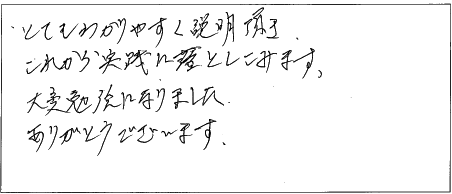 ・とてもわかりやすく説明頂き、
これから実践に落としこみます。
大変勉強になりました。
ありがとうございます。